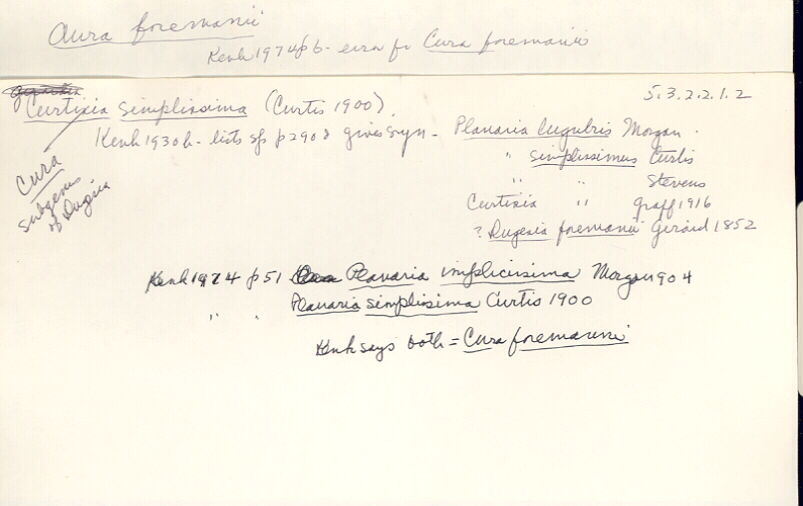 Aura foremanii
Kenk 1974 p6 - error for Cura foremanii
Curtixia simplissima (Curtis 1900). 5.3.2.2.1.2
Kenk 1930b - lists sp p290 & gives syn - Planaria lugubris Morgan.
" simplissimus Curtis
" " Stevens
Curtixia " Graff 1916
? Dugesia foremanii Girard 1852
Cura
subgenus
of Dugesia
Kenk 1974 p51 Planaria implicissima Morgan 1904
" " Planaria simplissima Curtis 1900
Kenk says both = Cura foremanii